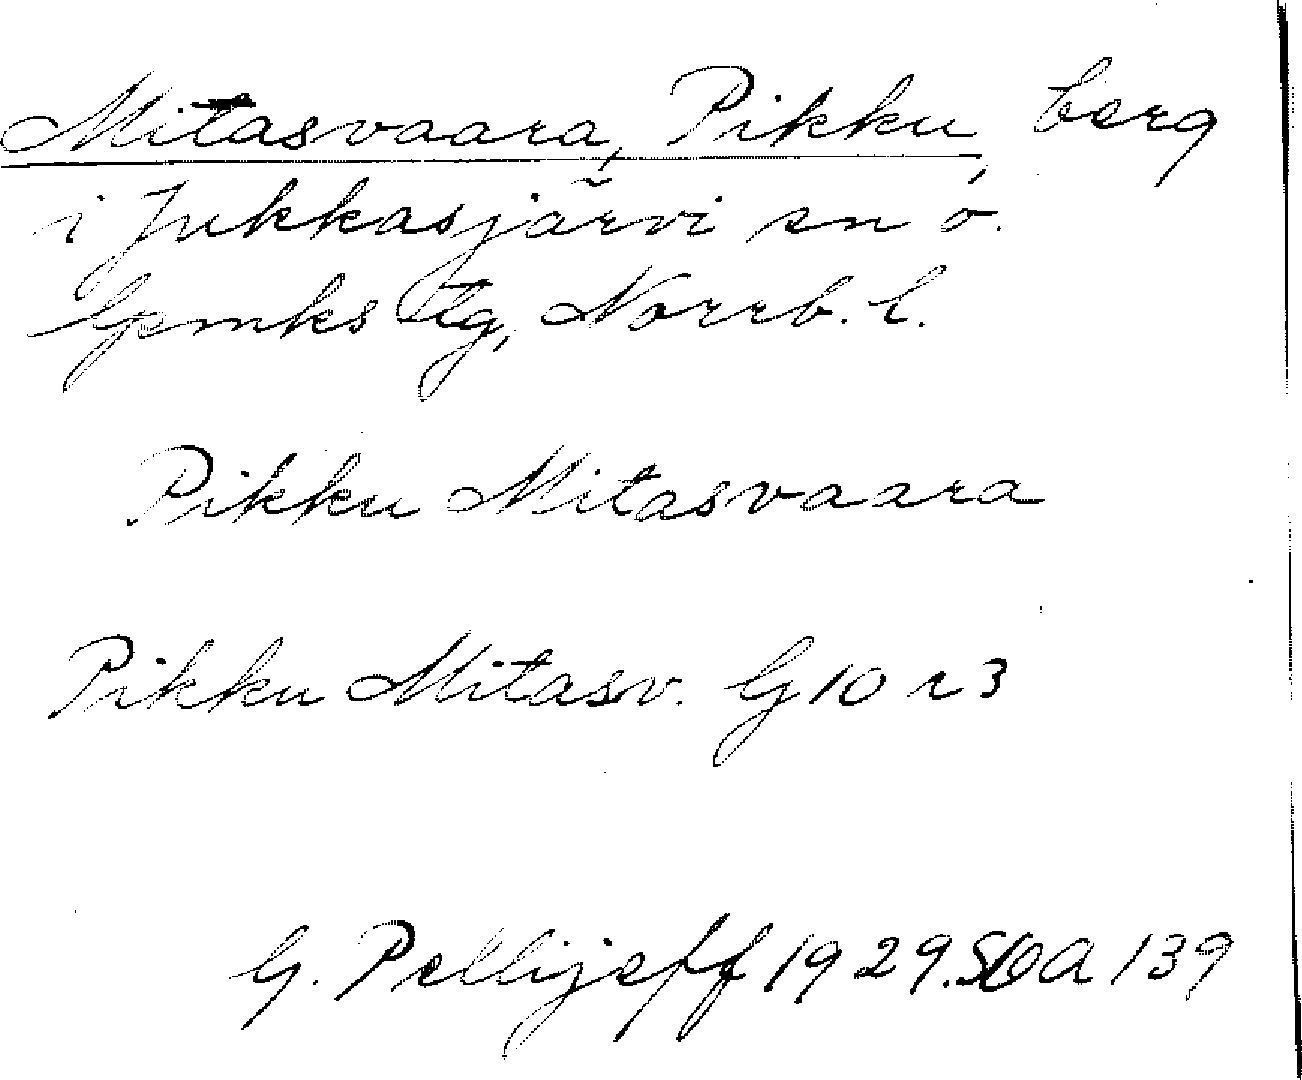 Mitasvaara, Pikku, berg
i Jukkasjärvi sn o.
Gpmks tlg, Norrb. l.
Pikku Mitasvaara
Pikku Mitasv. G 10 r 3
G. Pellijeff 1929. SOA 139